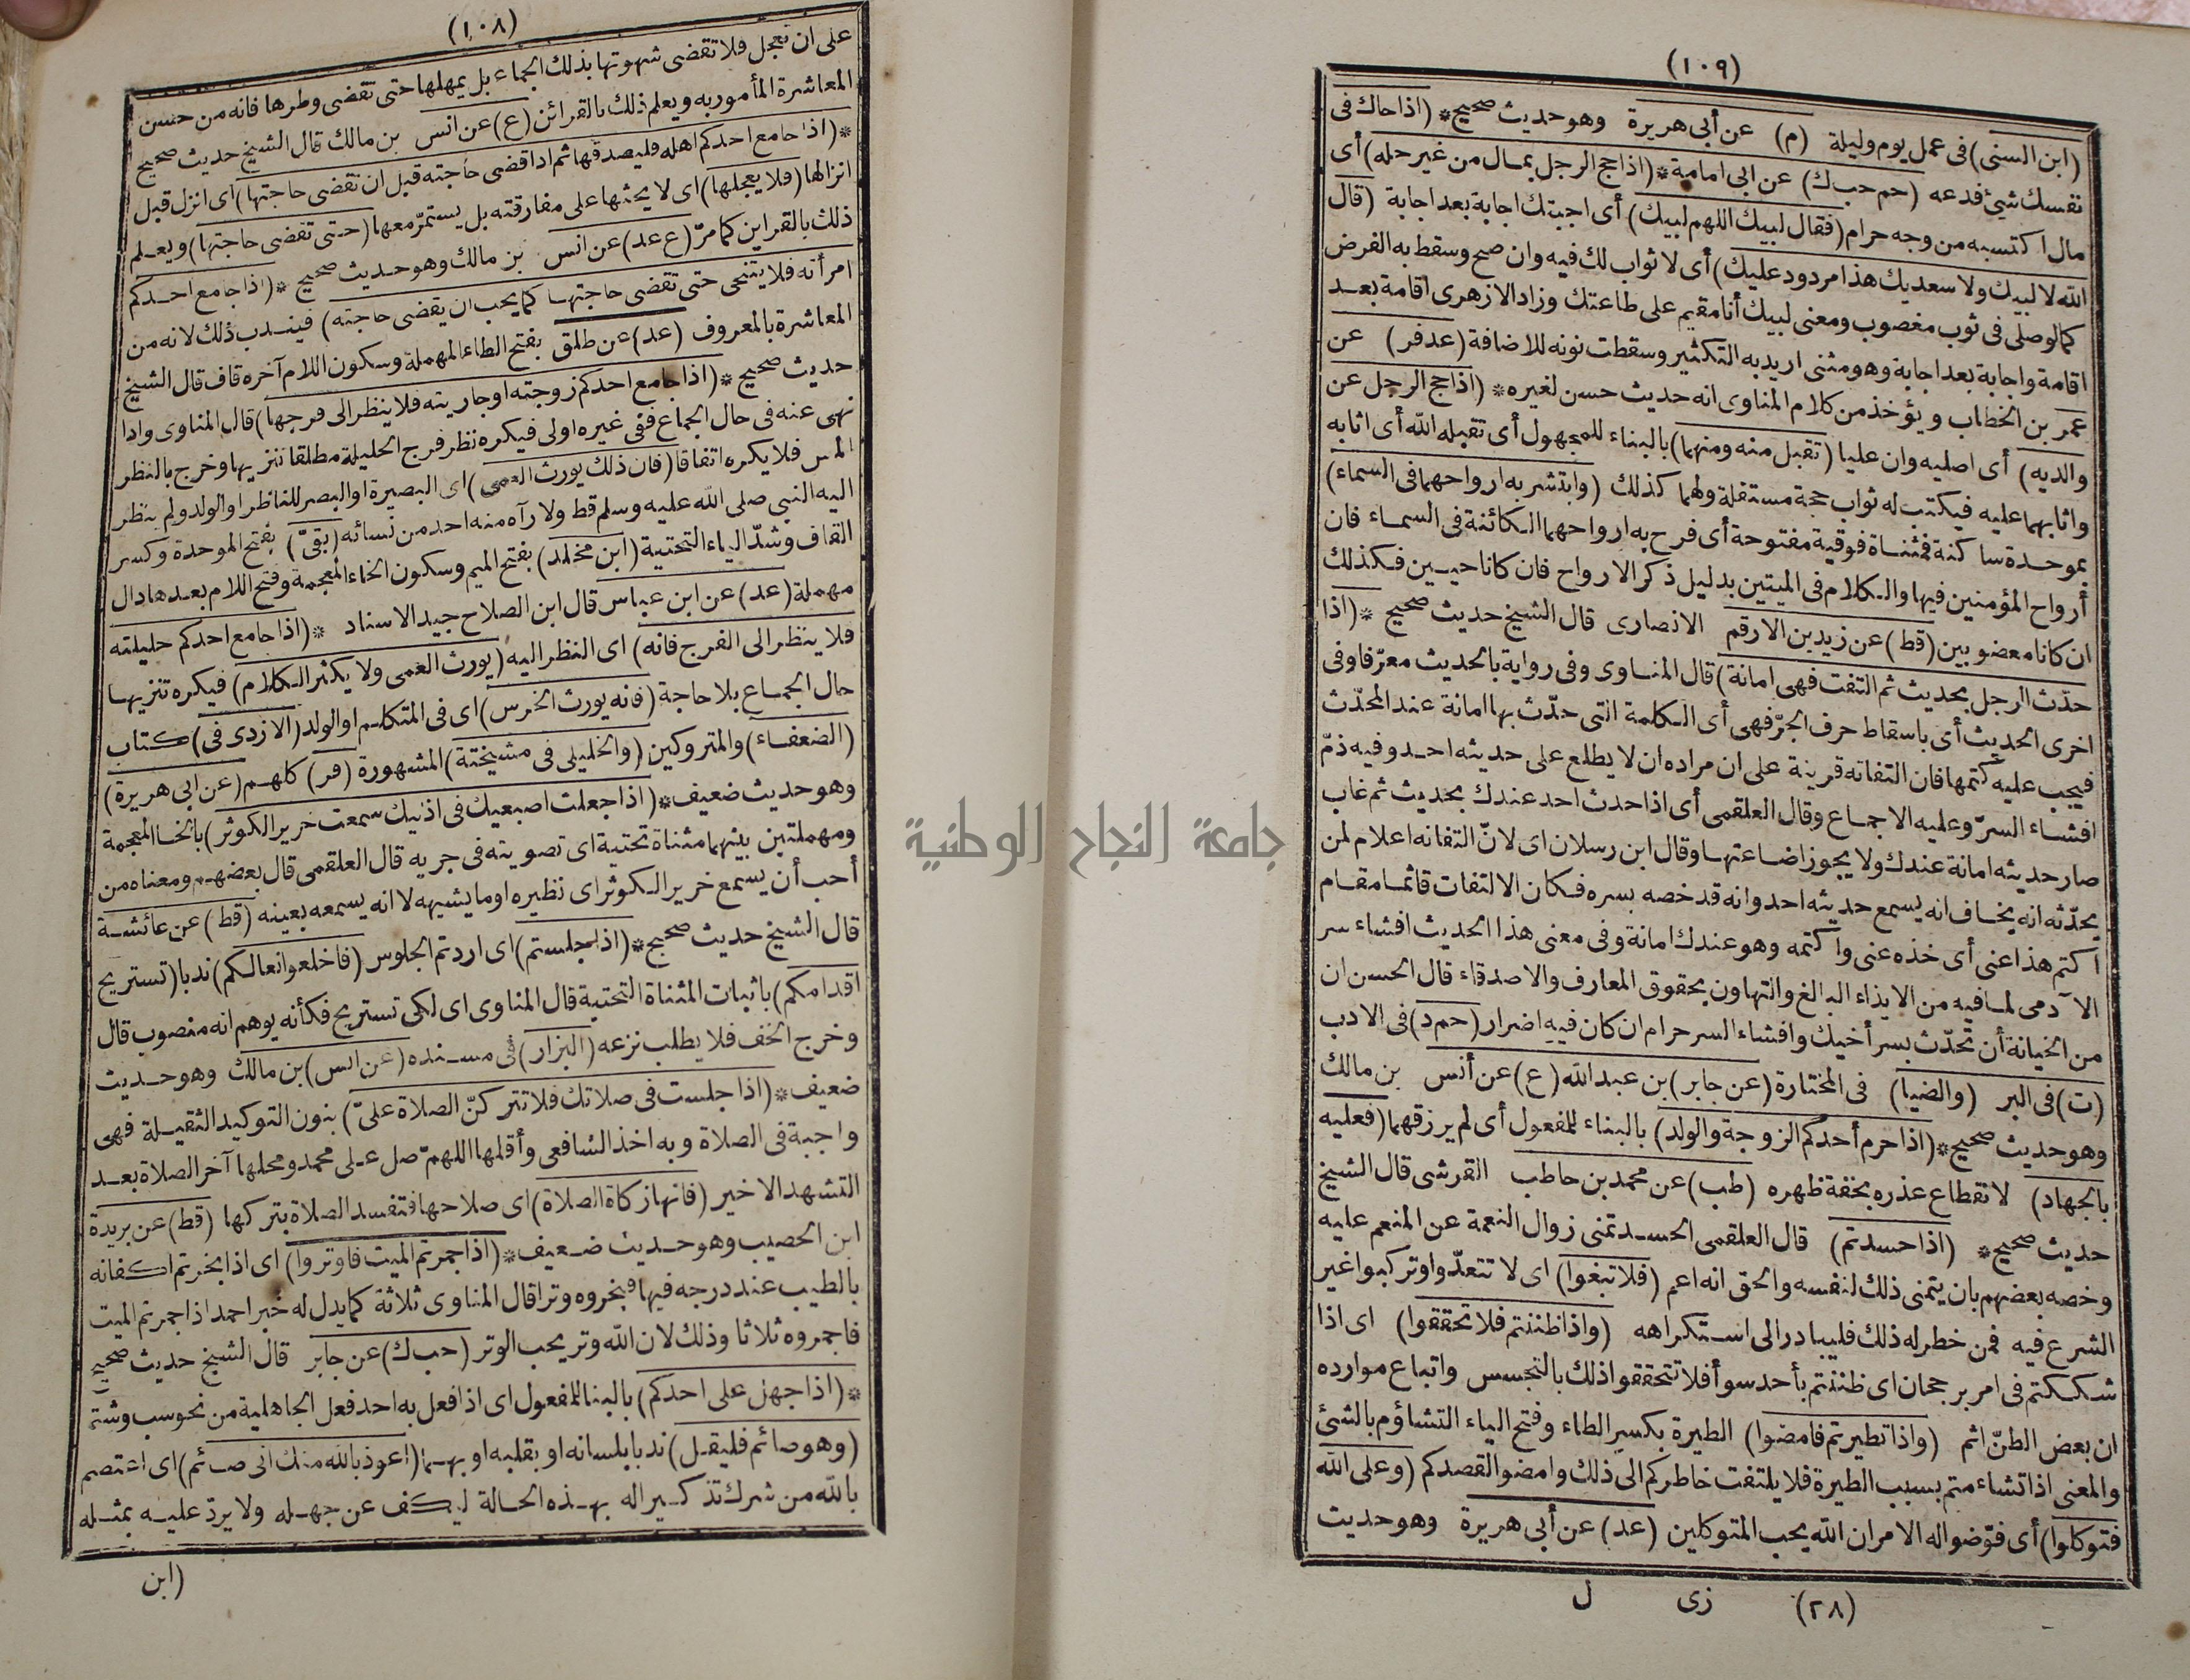 (١٠٨)
على ان تعجل فلا تقضى شهوتها بذلك الجماع بل يمهلها حتى تقضى وطرها فانه من حسن
المعاشرة المأمور به ويعلم ذلك بالقرائن (ع) عن انس بن مالك قال الشيخ حديث صحيح
*(اذا جامع احدكم اهله فليصدقها ثم اذا قضى حاجته قبل ان تقضى حاجتها) اى انزل قبل
انزالها (فلا يعجلها) اى لا يحثها على مفارقته بل يستمرّ معها (حتى تقضى حاجتها) ويعلم
ذلك بالقراين كما مرّ (ع عد) عن انس بن مالك وهو حديث صحيح *(اذا جامع احدكم
امرأته فلا يتنحى حتى تقضى حاجتها كما يحب ان يقضى حاجته) فيندب ذلك لانه من
المعاشرة بالمعروف (عد) عن طلق بفتح الطاء المهملة وسكون اللام آخره قاف قال الشيخ
حديث صحيح *(اذا جامع احدكم زوجته او جاريته فلا ينظر الى فرجها) قال المناوى واذا
نهى عنه فى حال الجماع ففى غيره اولى فيكره نظر فرج الحليلة مطلقا تنزيها وخرج بالنظر
المس فلا يكره اتفاقا (فان ذلك يورث العمى) اى البصيرة او البصر للناظر او الولد ولم ينظر
اليه النبى صلى الله عليه وسلم قط ولا رآه منه احد من نسائه (بقىّ) بفتح الموحدة وكسر
القاف وشدّ الياء التحتية (ابن مخلد) بفتح الميم وسكون الخاء المعجمة وفتح اللام بعدها دال
مهملة (عد) عن ابن عباس قال ابن الصلاح جيد الاسناد *(اذا جامع احدكم حليلته
فلا ينظر الى الفرج فانه) اى النظر اليه (يورث العمى ولا يكثر الكلام) فيكره تنزيها
حال الجماع بلا حاجة (فانه يورث الخرس) اى فى المتكلم او الولد (الازدى فى) كتاب
(الضعفاء) والمتروكين (والخليلى فى مشيخته) المشهورة (فر) كلهم (عن ابى هريرة)
وهو حديث ضعيف *(اذا جعلت اصبعيك فى اذنيك سمعت خرير الكوثر) بالخا المعجمة
ومهملتين بينهما مثناة تحتية اى تصويته فى جريه قال العلقمى قال بعضهم ومعناه من
أحب أن يسمع خرير الكوثر اى نظيره او ما يشبهه لا انه يسمعه بعينه (قط) عن عائشة
قال الشيخ حديث صحيح *(اذا جلستم) اى اردتم الجلوس (فاخلعوا نعالكم) ندبا (تستريح
اقدامكم) باثبات المثناة التحتية قال المناوى اى لكى تستريح فكأنه يوهم انه منصوب قال
وخرج الخف فلا يطلب نزعه (البزار) فى مسنده (عن انس) بن مالك وهو حديث
ضعيف *(اذا جلست فى صلاتك فلا تتركنّ الصلاة علىّ) بنون التوكيد الثقيلة فهى
واجبة فى الصلاة وبه اخذ الشافعى وأقلها اللهمّ صل على محمد ومحلها آخر الصلاة بعد
التشهد الاخير (فانها زكاة الصلاة) اى صلاحها فتفسد الصلاة بتركها (قط) عن بريدة
ابن الحصيب وهو حديث ضعيف *(اذا جمرتم الميت فاوتروا) اى اذا بخرتم اكفانه
بالطيب عند درجه فيها فبخروه وترا قال المناوى ثلاثة كما يدل له خبر احمد اذا جمرتم الميت
فاجمروه ثلاثا وذلك لان الله وتر يحب الوتر (حب ك) عن جابر قال الشيخ حديث صحيح
*(اذا جهل على احدكم) بالبنا للمفعول اى اذا فعل به احد فعل الجاهلية من نحو سب وشتم
(وهو صائم فليقل) ندبا بلسانه او بقلبه او بهما (اعوذ بالله منك انى صائم) اى اعتصم
بالله من شرك تذكيرا له بهذه الحالة ليكف عن جهله ولا يردّ عليه بمثله
(ابن
(١٠٩)
(ابن السنى) فى عمل يوم وليلة (م) عن أبى هريرة وهو حديث صحيح *(اذا حاك فى
نفسك شئ فدعه (حم حب ك) عن ابى امامة *(اذا حج الرجل بمال من غير حله) أى
مال اكتسبه من وجه حرام (فقال لبيك اللهم لبيك) أى اجبتك اجابة بعد اجابة (قال
الله لا لبيك ولا سعديك هذا مردود عليك) أى لا ثواب لك فيه وان صح وسقط به الفرض
كما لو صلى فى ثوب مغصوب ومعنى لبيك أنا مقيم على طاعتك وزاد الازهرى اقامة بعد
اقامة واجابة بعد اجابة وهو مثنى اريد به التكثير وسقطت نونه للاضافة (عد فر) عن
عمر بن الخطاب ويؤخذ من كلام المناوى انه حديث حسن لغيره *(اذا حج الرجل عن
والديه) أى اصليه وان عليا (تقبل منه ومنهما) بالبناء للمجهول أى تقبله الله أى اثابه
واثابهما عليه فيكتب له ثواب حجة مستقلة ولهما كذلك (وابتشر به ارواحهما فى السماء)
بموحدة ساكنة فمثناة فوقية مفتوحة أى فرح به ارواحهما الكائنة فى السماء فان
أرواح المؤمنين فيها والكلام فى الميتين بدليل ذكر الارواح فان كانا حيين فكذلك
ان كانا معضوبين (قط) عن زيد بن الارقم الانصارى قال الشيخ حديث صحيح *(اذا
حدّث الرجل بحديث ثم التفت فهى امانة) قال المناوى وفى رواية بالحديث معرّفا وفى
اخرى الحديث أى باسقاط حرف الجرّ فهى أى الكلمة التى حدّث بها امانة عند المحدّث
فيجب عليه كتمها فان التفاته قرينة على ان مراده ان لا يطلع على حديثه احد وفيه ذمّ
افشاء السرّ وعليه الاجماع وقال العلقمى أى اذا حدث احد عندك بحديث ثم غاب
صار حديثه امانة عندك ولا يجوز اضاعتها وقال ابن رسلان اى لانّ التفاته اعلام لمن
يحدّثه انه يخاف انه يسمع حديثه احد وانه قد خصه بسره فكان الالتفات قائما مقام
اكتم هذا عنى أى خذه عنى واكتمه وهو عندك امانة وفى معنى هذا الحديث افشاء سر
الآدمى لما فيه من الايذاء البالغ والتهاون بحقوق المعارف والاصدقاء قال الحسن ان
من الخيانة أن تحدّث بسر أخيك وافشاء السر حرام ان كان فيه اضرار (حم د) فى الادب
(ت) فى البر (والضيا) فى المختارة (عن جابر) بن عبدالله (ع) عن أنس بن مالك
وهو حديث صحيح *(اذا حرم أحدكم الزوجة والولد) بالبناء للمفعول أى لم يرزقهما (فعليه
بالجهاد) لانقطاع عذره بخفة ظهره (طب) عن محمد بن حاطب القرشى قال الشيخ
حديث صحيح * (اذا حسدتم) قال العلقمى الحسد تمنى زوال النعمة عن المنعم عليه
وخصه بعضهم بان يتمنى ذلك لنفسه والحق انه اعم (فلا تبغوا) اى لا تتعدّوا وتركبوا غير
الشرع فيه فمن خطر له ذلك فليبادر الى استكراهه (واذا ظننتم فلا تحققوا) اى اذا
شككتم فى امر برجحان اى ظننتم بأحد سوأ فلا تتحققوا ذلك بالتجسس واتباع موارده
ان بعض الظنّ اثم (واذا تطيرتم فامضوا) الطيرة بكسر الطاء وفتح الياء التشاؤم بالشئ
والمعنى اذا تشاءمتم بسبب الطيرة فلا يلتفت خاطركم الى ذلك وامضوا لقصدكم (وعلى الله
فتوكلوا) أى فوّضوا له الامر ان الله يحب المتوكلين (عد) عن أبى هريرة وهو حديث
(٢٨) زى ل
جامعة النجاح الوطنية